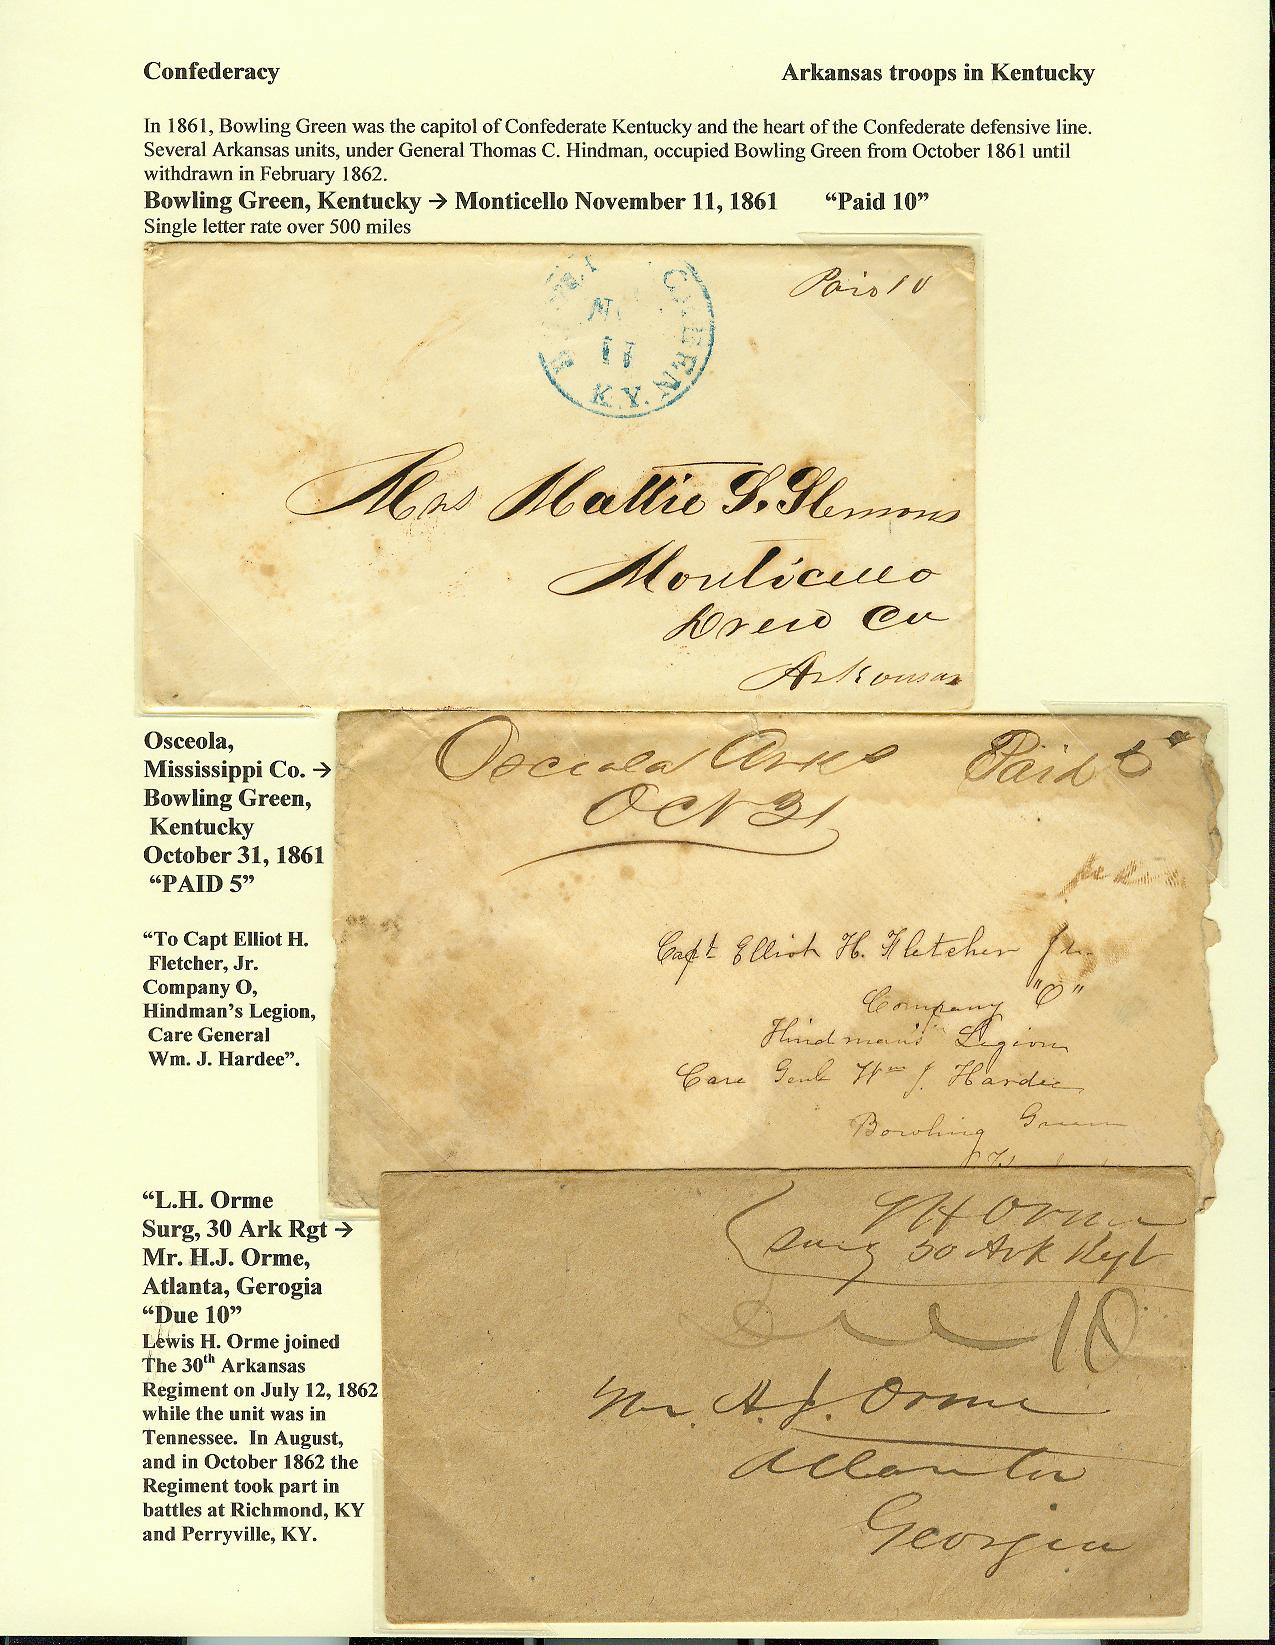 Confederacy Arkansas troops in Kentucky
In 1861, Bowling Green was the capitol of Confederate Kentucky and the heart of the Confederate defensive line.
Several Arkansas units, under General Thomas C. Hindman, occupied Bowling Green from October 1861 until
withdrawn in February 1862.
Bowling Green, Kentucky → Monticello November 11, 1861 “Paid 10”
Single letter rate over 500 miles
Paid 10
GREEN
11
KY.
Mrs Mattie S. Slemons
Monticello
Drew Co
Arkansas
Osceola,
Mississippi Co. →
Bowling Green,
Kentucky
October 31, 1861
“PAID 5”
“To Capt Elliot H.
Fletcher, Jr.
Company O,
Hindman’s Legion,
Care General
Wm. J. Hardee”.
Osceola Arks Paid 5
Oct 31
Capt Elliot H. Fletcher Jr.
Company "O"
Hindman's Legion
Care Genl Wm J. Hardee
Bowling Green
“L.H. Orme
Surg, 30 Ark Rgt →
Mr. H.J. Orme,
Atlanta, Gerogia
“Due 10”
Lewis H. Orme joined
The 30th Arkansas
Regiment on July 12, 1862
while the unit was in
Tennessee. In August,
and in October 1862 the
Regiment took part in
battles at Richmond, KY
and Perryville, KY.
LH Orme
Surg 30 Ark Regt
Due 10
Mr. H.J. Orme
Atlanta
Georgia